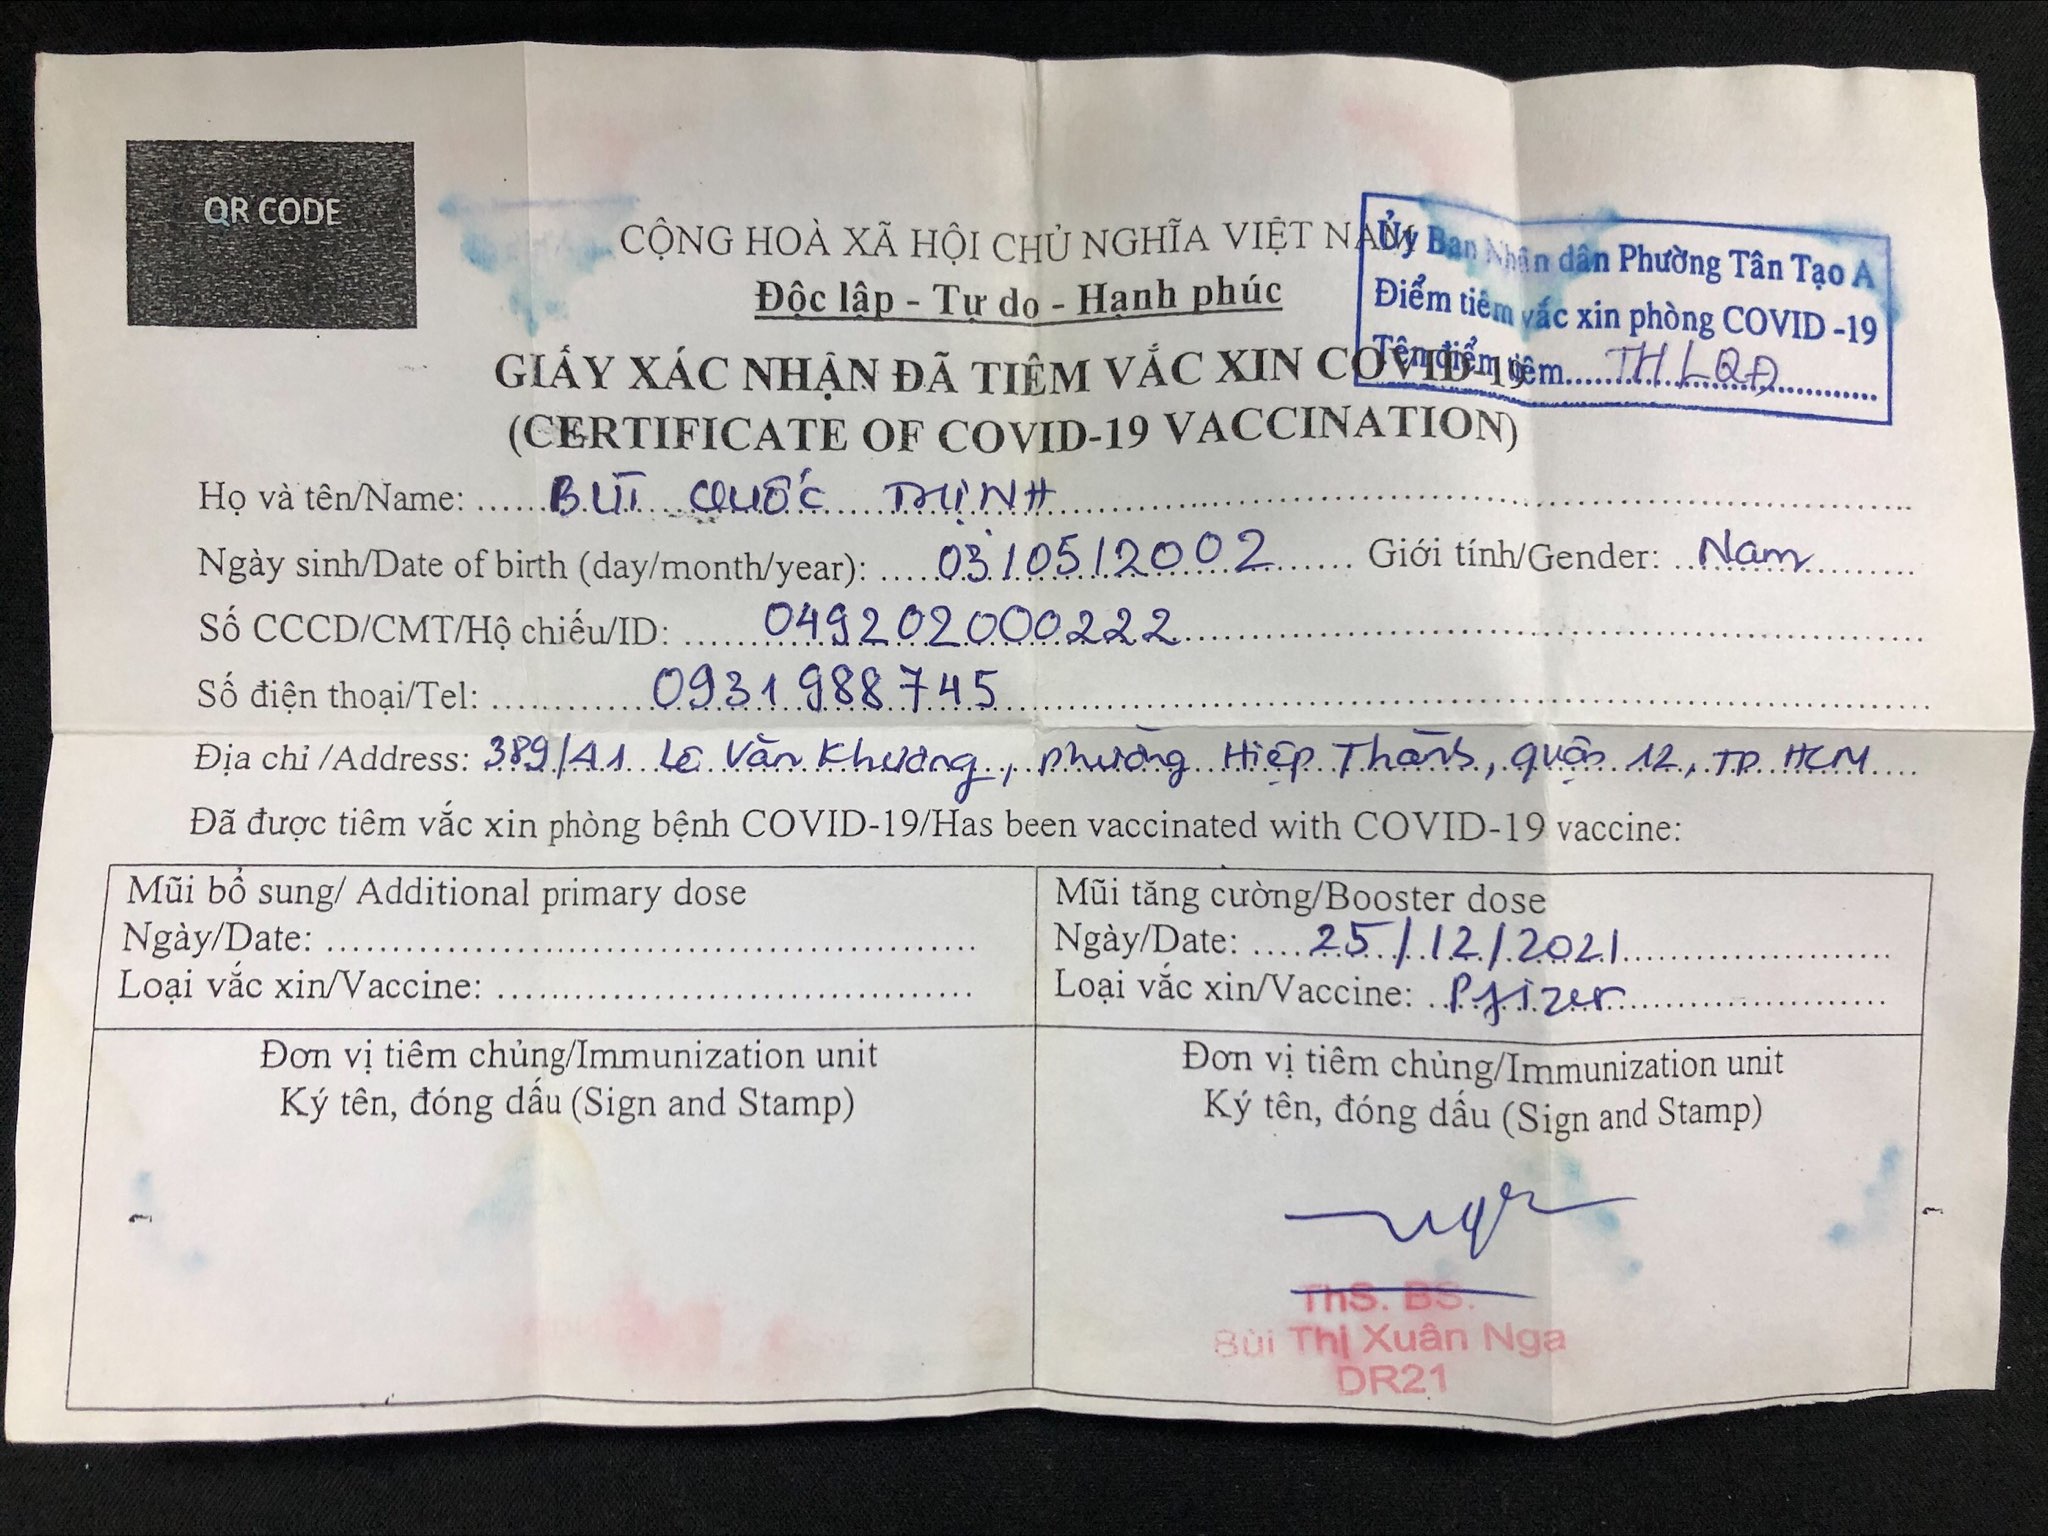 QR CODE
CỘNG HOÀ XÃ HỘI CHỦ NGHĨA VIỆT NAM
Độc lập - Tự do - Hạnh phúc
Ủy Ban Nhân dân Phường Tân Tạo A
Điểm tiêm vắc xin phòng COVID -19
Tên điểm tiêm.....TH LQĐ.....
GIẤY XÁC NHẬN ĐÃ TIÊM VẮC XIN COVID-19
(CERTIFICATE OF COVID-19 VACCINATION)
Họ và tên/Name: ..... BÙI QUỐC THỊNH .....
Ngày sinh/Date of birth (day/month/year): .... 03/05/2002 ...... Giới tính/Gender: .. Nam .....
Số CCCD/CMT/Hộ chiếu/ID: ..... 049202000222 .....
Số điện thoại/Tel: ..... 0931988745 .....
Địa chỉ /Address: 389/A1 Lê Văn Khương, phường Hiệp Thành, quận 12, TP. HCM ....
Đã được tiêm vắc xin phòng bệnh COVID-19/Has been vaccinated with COVID-19 vaccine:
Mũi bổ sung/ Additional primary dose
Ngày/Date: .....
Loại vắc xin/Vaccine: .....
Đơn vị tiêm chủng/Immunization unit
Ký tên, đóng dấu (Sign and Stamp)
Mũi tăng cường/Booster dose
Ngày/Date: .... 25/12/2021 .....
Loại vắc xin/Vaccine: .. Pfizer .....
Đơn vị tiêm chủng/Immunization unit
Ký tên, đóng dấu (Sign and Stamp)
ThS. BS.
Bùi Thị Xuân Nga
DR21